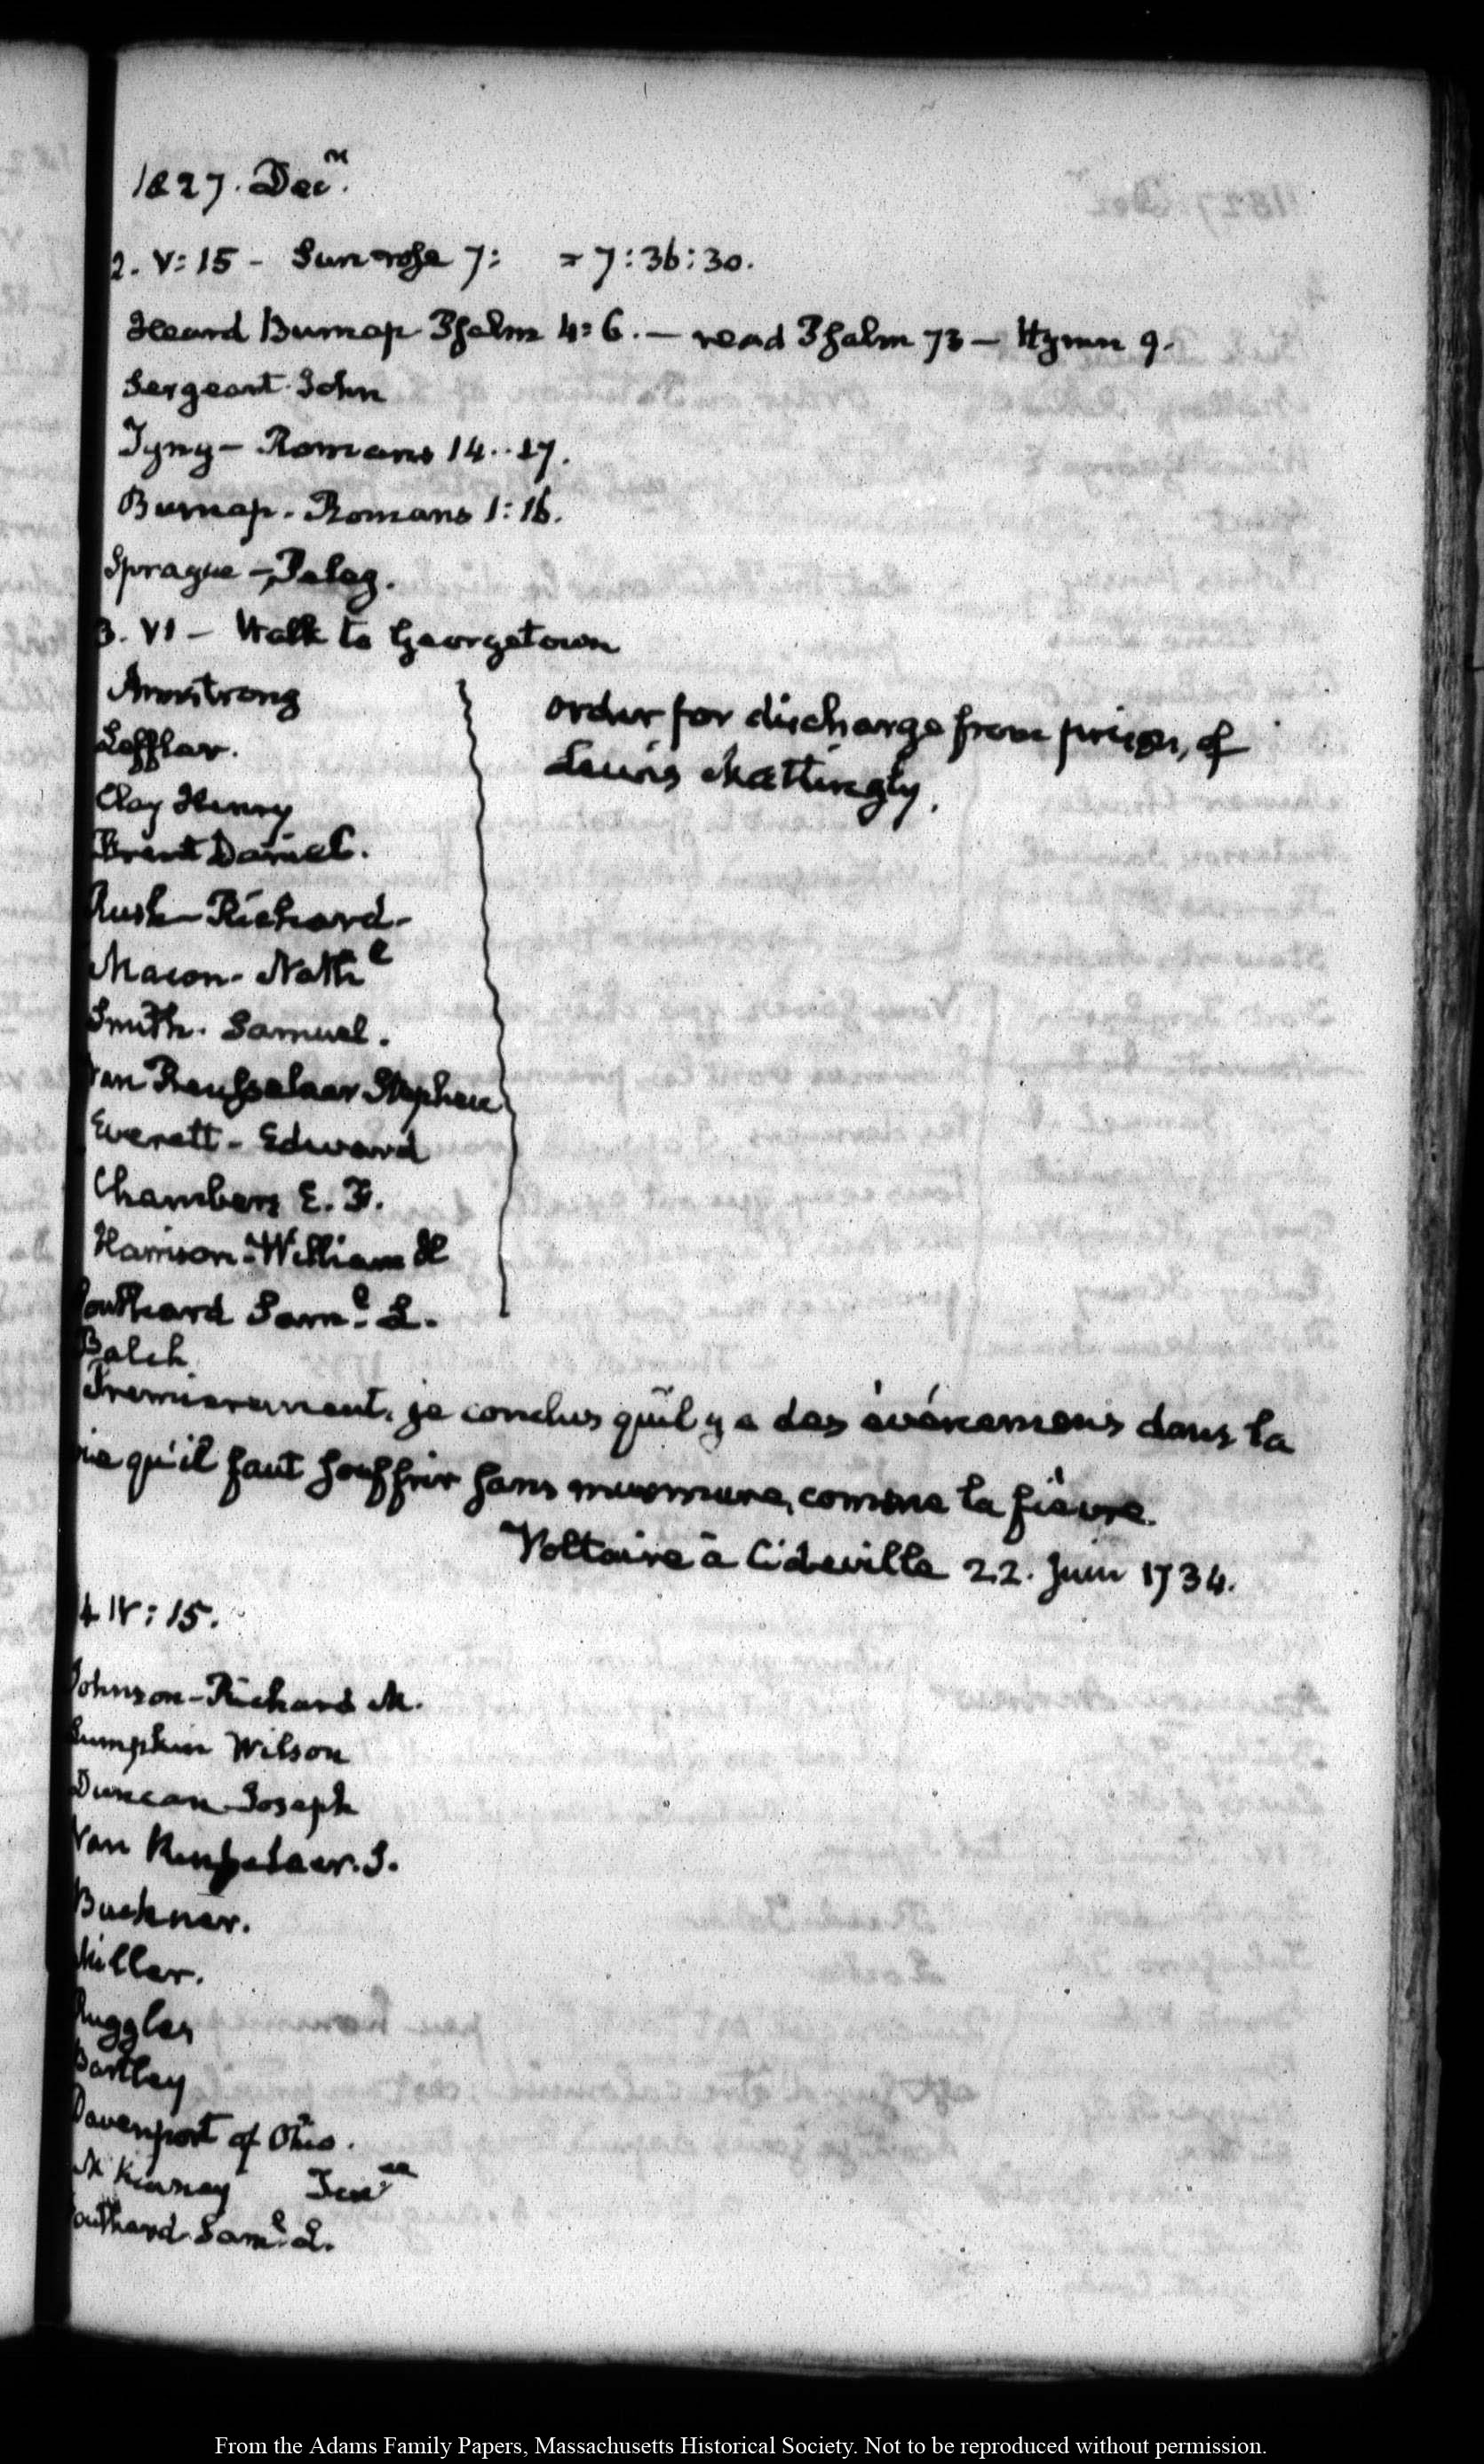 1827. Decr.
2. V: 15 - Sun rose 7:   = 7:36:30.
Heard Burnap Psalm 4:6. — read Psalm 73 — Hymn 9.
Sergeant John
Tyng — Romans 14..17.
Burnap. Romans 1:16.
Sprague — Peleg.
3. VI — Walk to Georgetown
Armstrong
Leffler.
Clay Henry
Brent Daniel.
Rush — Richard.
Macon. Nathl
Smith. Samuel.
Van Rensselaer Stephen
Everett — Edward
Chambers E. F.
Harrison. William H
Southard Saml. L.
order for discharge from prison, of
Lewis Mattingly.
Balch
Premierement, je conclus qu'il y a des évenemens dans la
vie qu'il faut souffrir sans murmure, comme la fièvre.
Voltaire à Cideville 22. Juin 1734.
4 IV: 15.
Johnson — Richard M.
Lumpkin Wilson
Duncan Joseph
Van Rensselaer. S.
Buckner.
Miller.
Ruggles
Bartley
Davenport of Ohio.
McKinney
Southard Saml. L.